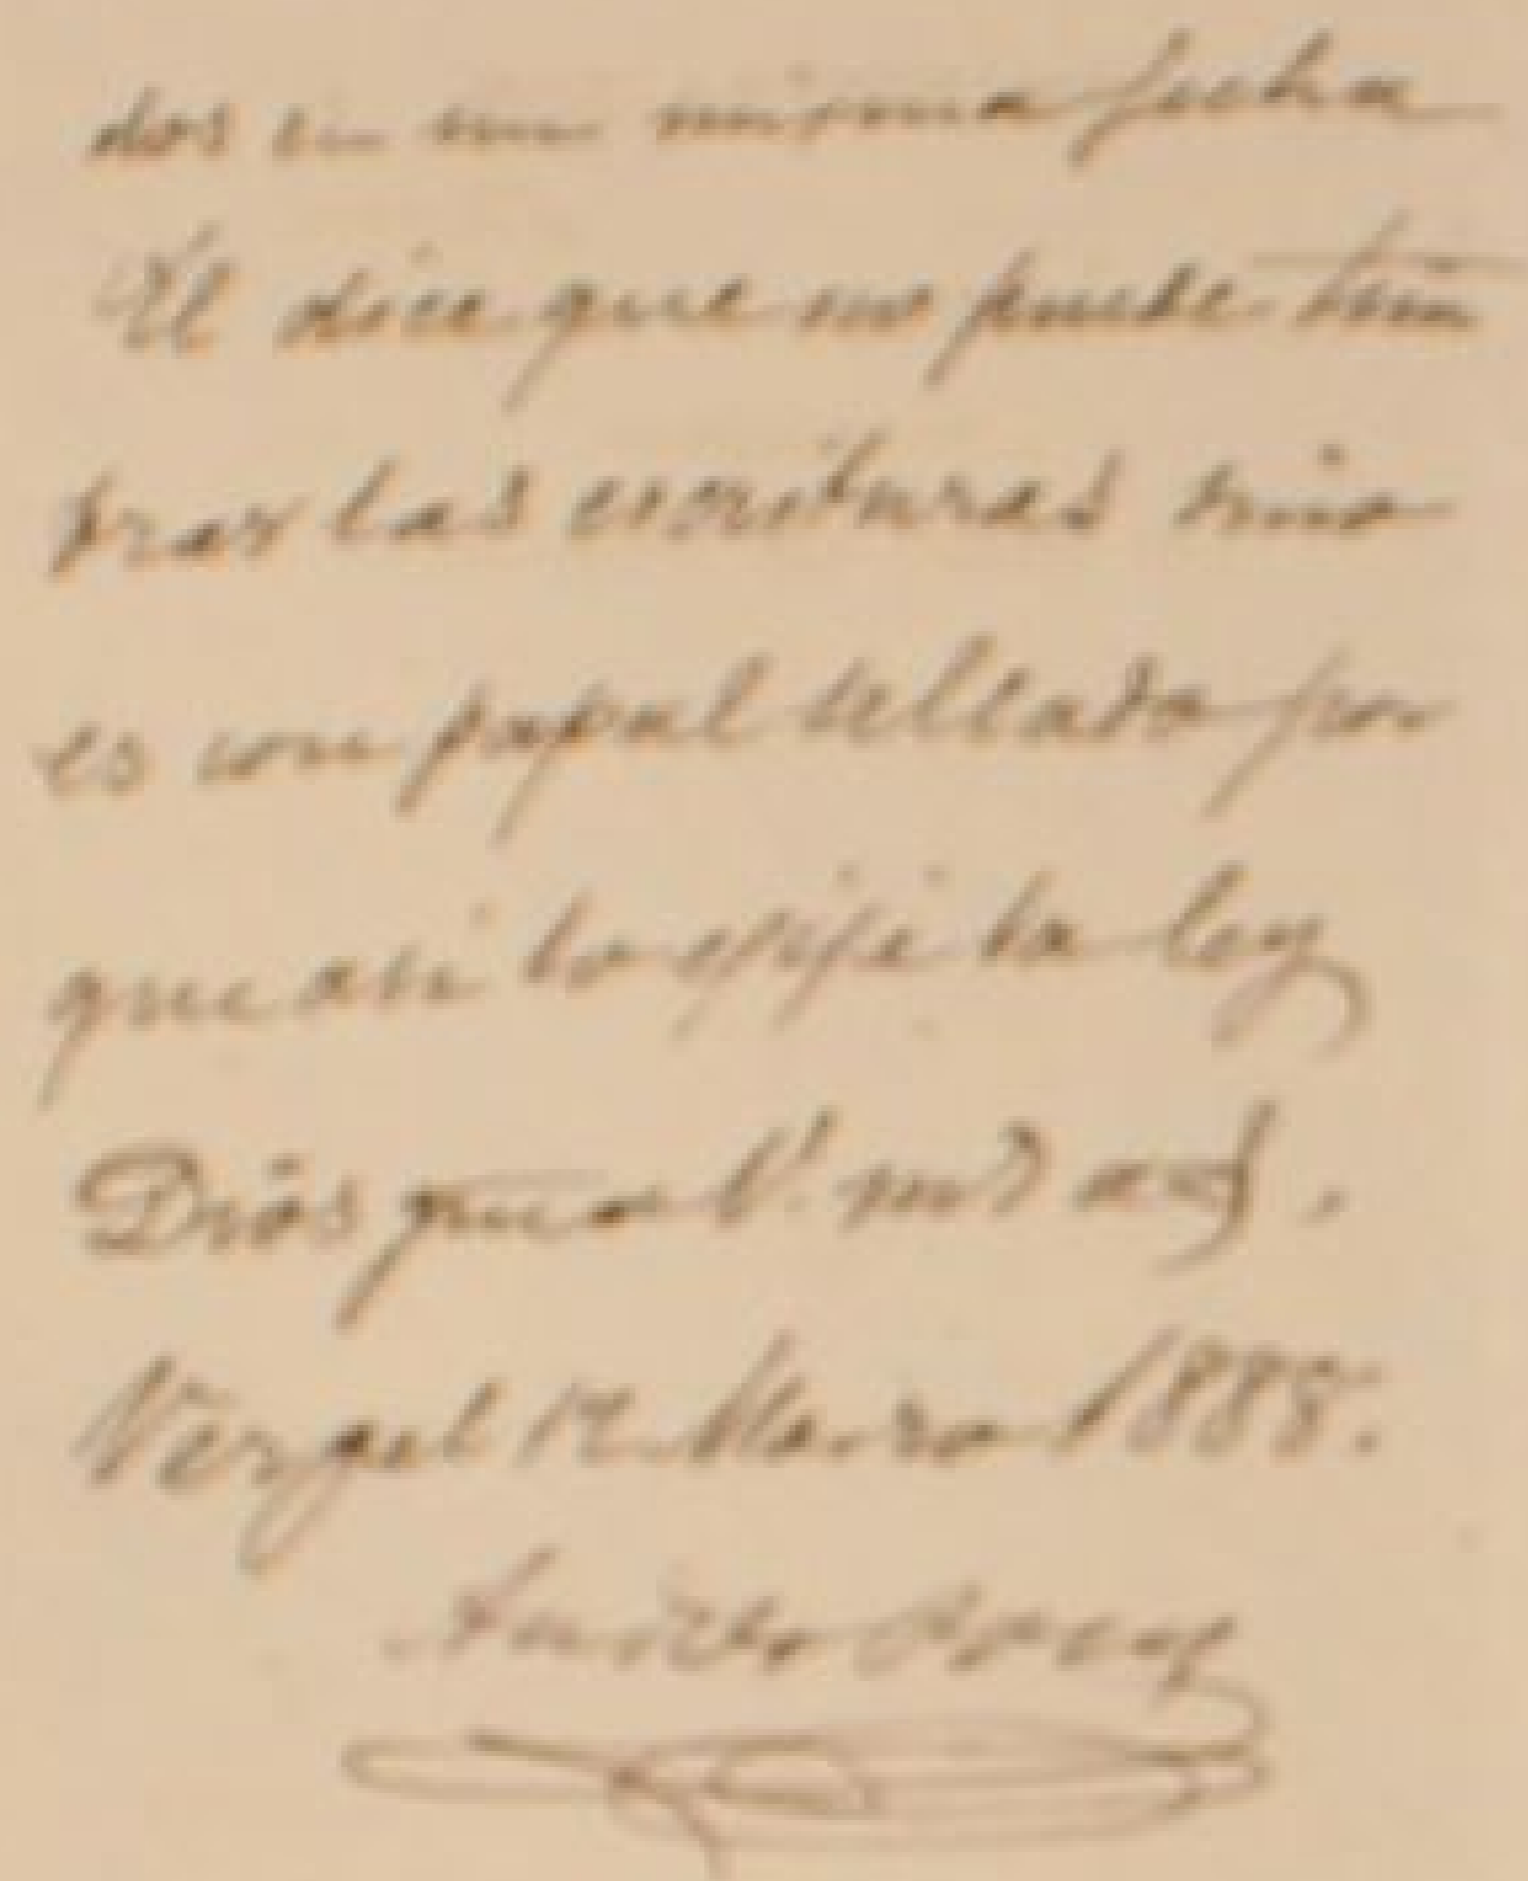 dos en un misma fecha
El dice que no puede
las escrituras sino
es con papel sellado por
que asi lo exije la ley
Dios gue a V. m.s a.s.
Vergel 12 Marzo 1888.
Andres